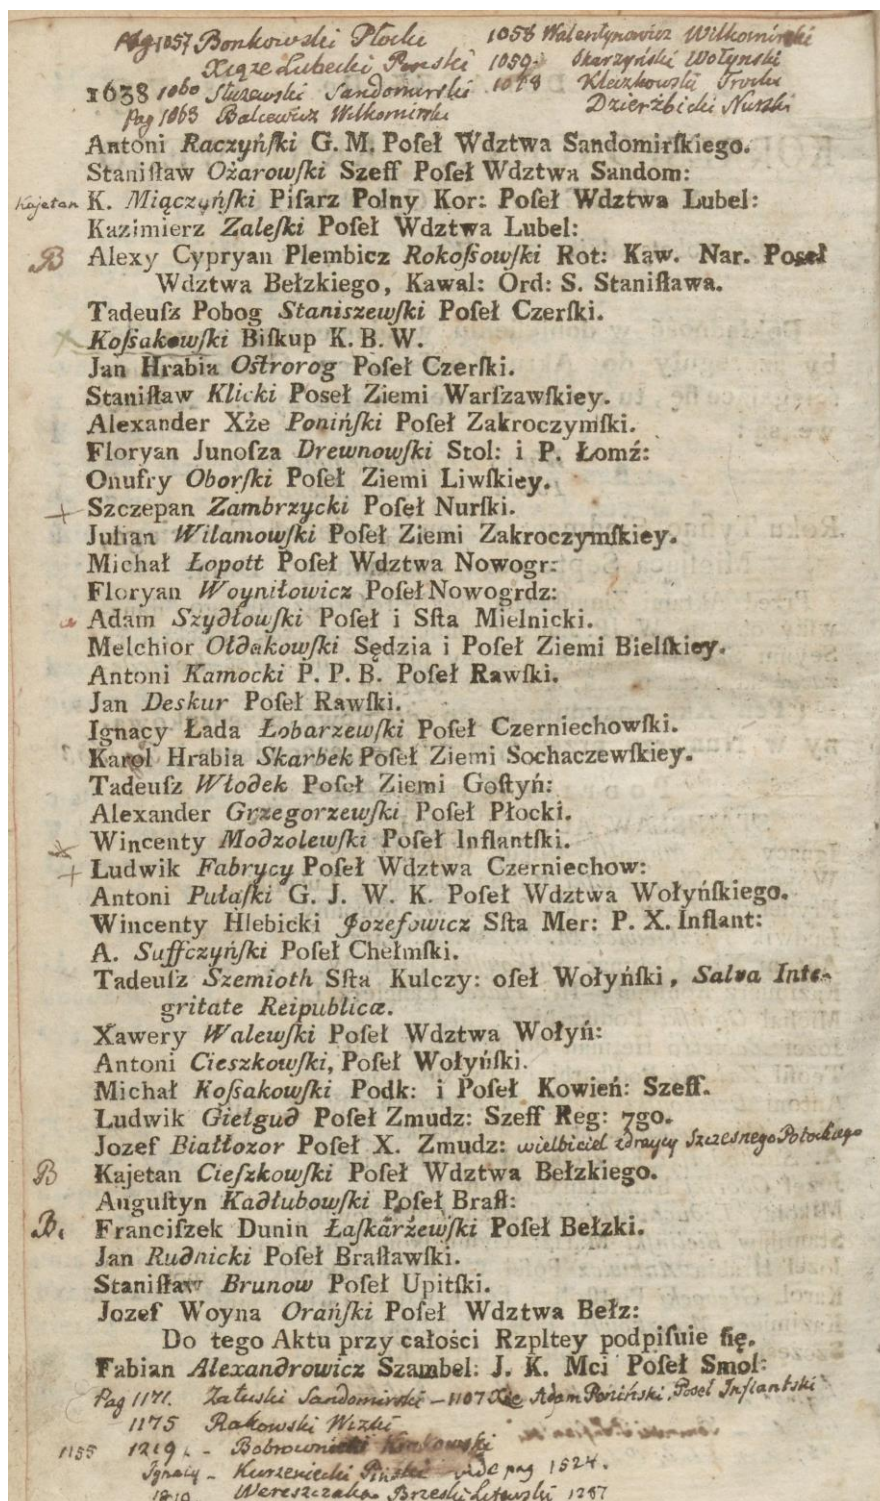 Pag 1057 Bonkowski Płocki 1058 Walentynowicz Wilkomirski
Xiąże Lubecki Pinski 1059 Skarzyński Wołynski
1638 1060 Staszewski Sandomirski 1078 Kleczkowski Trocki
Pag 1063 Balcewicz Wilkomirski Dzierzbicki Nurski
Antoni Raczyńſki G. M. Poſeł Wdztwa Sandomirſkiego.
Stanisław Ożarowſki Szeff Poſeł Wdztwa Sandom:
Kajetan K. Miączyńſki Piſarz Polny Kor: Poſeł Wdztwa Lubel:
Kazimierz Zaleſki Poſeł Wdztwa Lubel:
B Alexy Cypryan Plembicz Rokoſsowſki Rot: Kaw. Nar. Poseł
Wdztwa Bełzkiego, Kawal: Ord: S. Staniſława.
Tadeuſz Pobog Staniszewſki Poſeł Czerſki.
Koſsakowſki Biſkup K. B. W.
Jan Hrabia Oſtrorog Poſeł Czerſki.
Staniſław Klicki Poseł Ziemi Warſzawſkiey.
Alexander Xże Ponińſki Poſeł Zakroczymſki.
Floryan Junoſza Drewnowſki Stol: i P. Łomź:
Onufry Oborſki Poſeł Ziemi Liwſkiey.
+ Szczepan Zambrzycki Poſeł Nurſki.
Julian Wilamowſki Poſeł Ziemi Zakroczymſkiey.
Michał Łopott Poſeł Wdztwa Nowogr:
Floryan Woyniłowicz Poſeł Nowogrdz:
Adam Szydłowſki Poſeł i Sſta Mielnicki.
Melchior Ołdakowſki Sędzia i Poſeł Ziemi Bielſkiey.
Antoni Kamocki P. P. B. Poſeł Rawſki.
Jan Deskur Poſeł Rawſki.
Ignacy Łada Łobarzewſki Poſeł Czerniechowſki.
Karol Hrabia Skarbek Poſeł Ziemi Sochaczewſkiey.
Tadeuſz Włodek Poſeł Ziemi Goſtyń:
Alexander Grzegorzewſki Poſeł Płocki.
Wincenty Modzolewſki Poſeł Inflantſki.
+ Ludwik Fabrycy Poſeł Wdztwa Czerniechow:
Antoni Pułaſki G. J. W. K. Poſeł Wdztwa Wołyńſkiego.
Wincenty Hlebicki Jozefowicz Sſta Mer: P. X. Inflant:
A. Suffczyńſki Poſeł Chełmſki.
Tadeuſz Szemioth Sſta Kulczy: oſeł Wołyńſki, Salva Inte-
gritate Reipublicæ.
Xawery Walewſki Poſeł Wdztwa Wołyń:
Antoni Cieszkowſki, Poſeł Wołyńſki.
Michał Koſsakowſki Podk: i Poſeł Kowień: Szeff.
Ludwik Giełgud Poſeł Zmudz: Szeff Reg: 7go.
Jozef Białłozor Poſeł X. Zmudz: wielbiciel zdraycy Szczesnego Potockiego
B Kajetan Cieſzkowſki Poſeł Wdztwa Bełzkiego.
Auguſtyn Kadłubowſki Poſeł Braſł:
B. Franciſzek Dunin Łaſkarżewſki Poſeł Bełzki.
Jan Rudnicki Poſeł Braſławſki.
Staniſław Brunow Poſeł Upitſki.
Jozef Woyna Orańſki Poſeł Wdztwa Bełz:
Do tego Aktu przy całości Rzpltey podpiſuie ſię.
Fabian Alexandrowicz Szambel: J. K. Mci Poſeł Smol:
Pag 1171. Załuski Sandomirski – 1107 Xże Adam Poniński Poseł Inflantski
1175 Rakowski Wizki
1155 1219 – Bobrownicki
Ignacy – Kurzeniecki Piński vide pag 1524.
1810 Wereszczaka Brzeski Litewski 1287